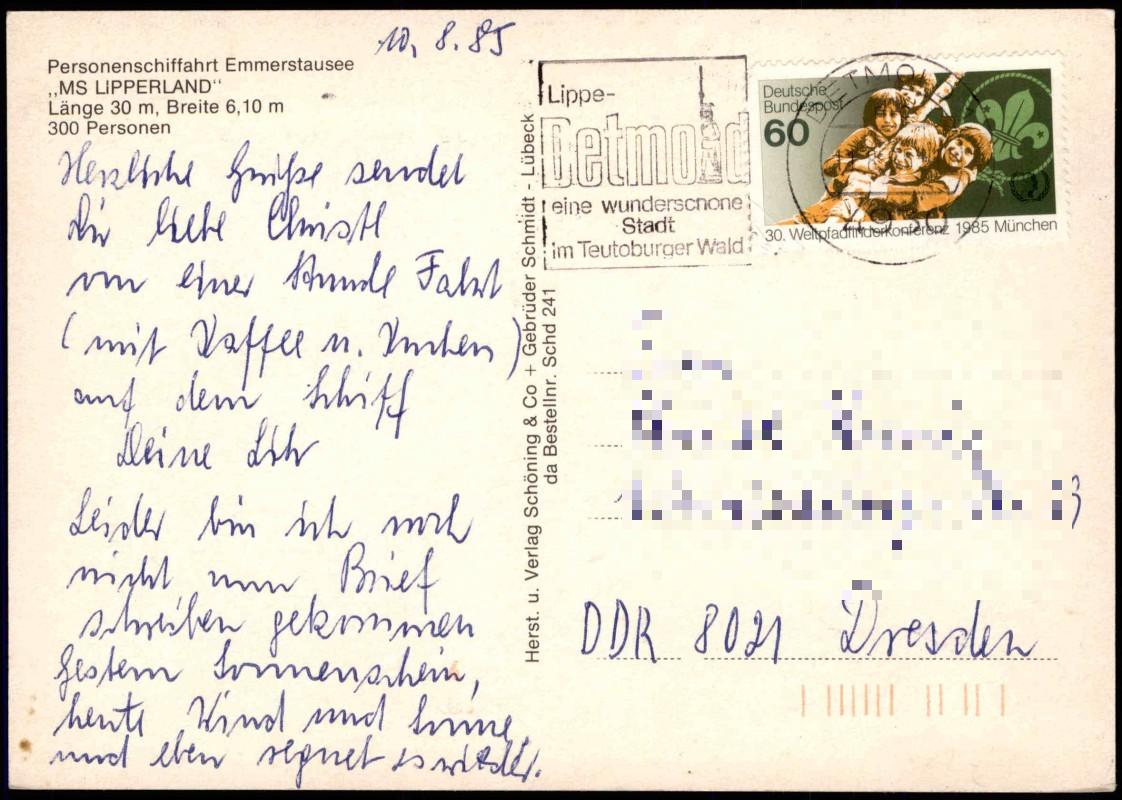 10. 8. 85
Personenschiffahrt Emmerstausee
„MS LiPPERLAND“
Länge 30 m, Breite 6,10 m
300 Personen
Herzliche Grüße sendet
Dir liebe Christl
von einer Stunde Fahrt
(mit Kaffee u. Kuchen)
auf dem Schiff
Deine
Leider bin ich noch
nicht zum Brief
schreiben gekommen
Gestern Sonnenschein,
heute Wind und Sonne,
und eben regnet es wieder.
Herst. u. Verlag Schöning & Co + Gebrüder Schmidt - Lübeck
da Bestellnr. Schd 241
Lippe-
Detmold
eine wunderschöne
Stadt
im Teutoburger Wald
Deutsche
Bundespost
60
30. Weltpfadfinderkonferenz 1985 München
DETMOLD
4930
DDR 8021 Dresden